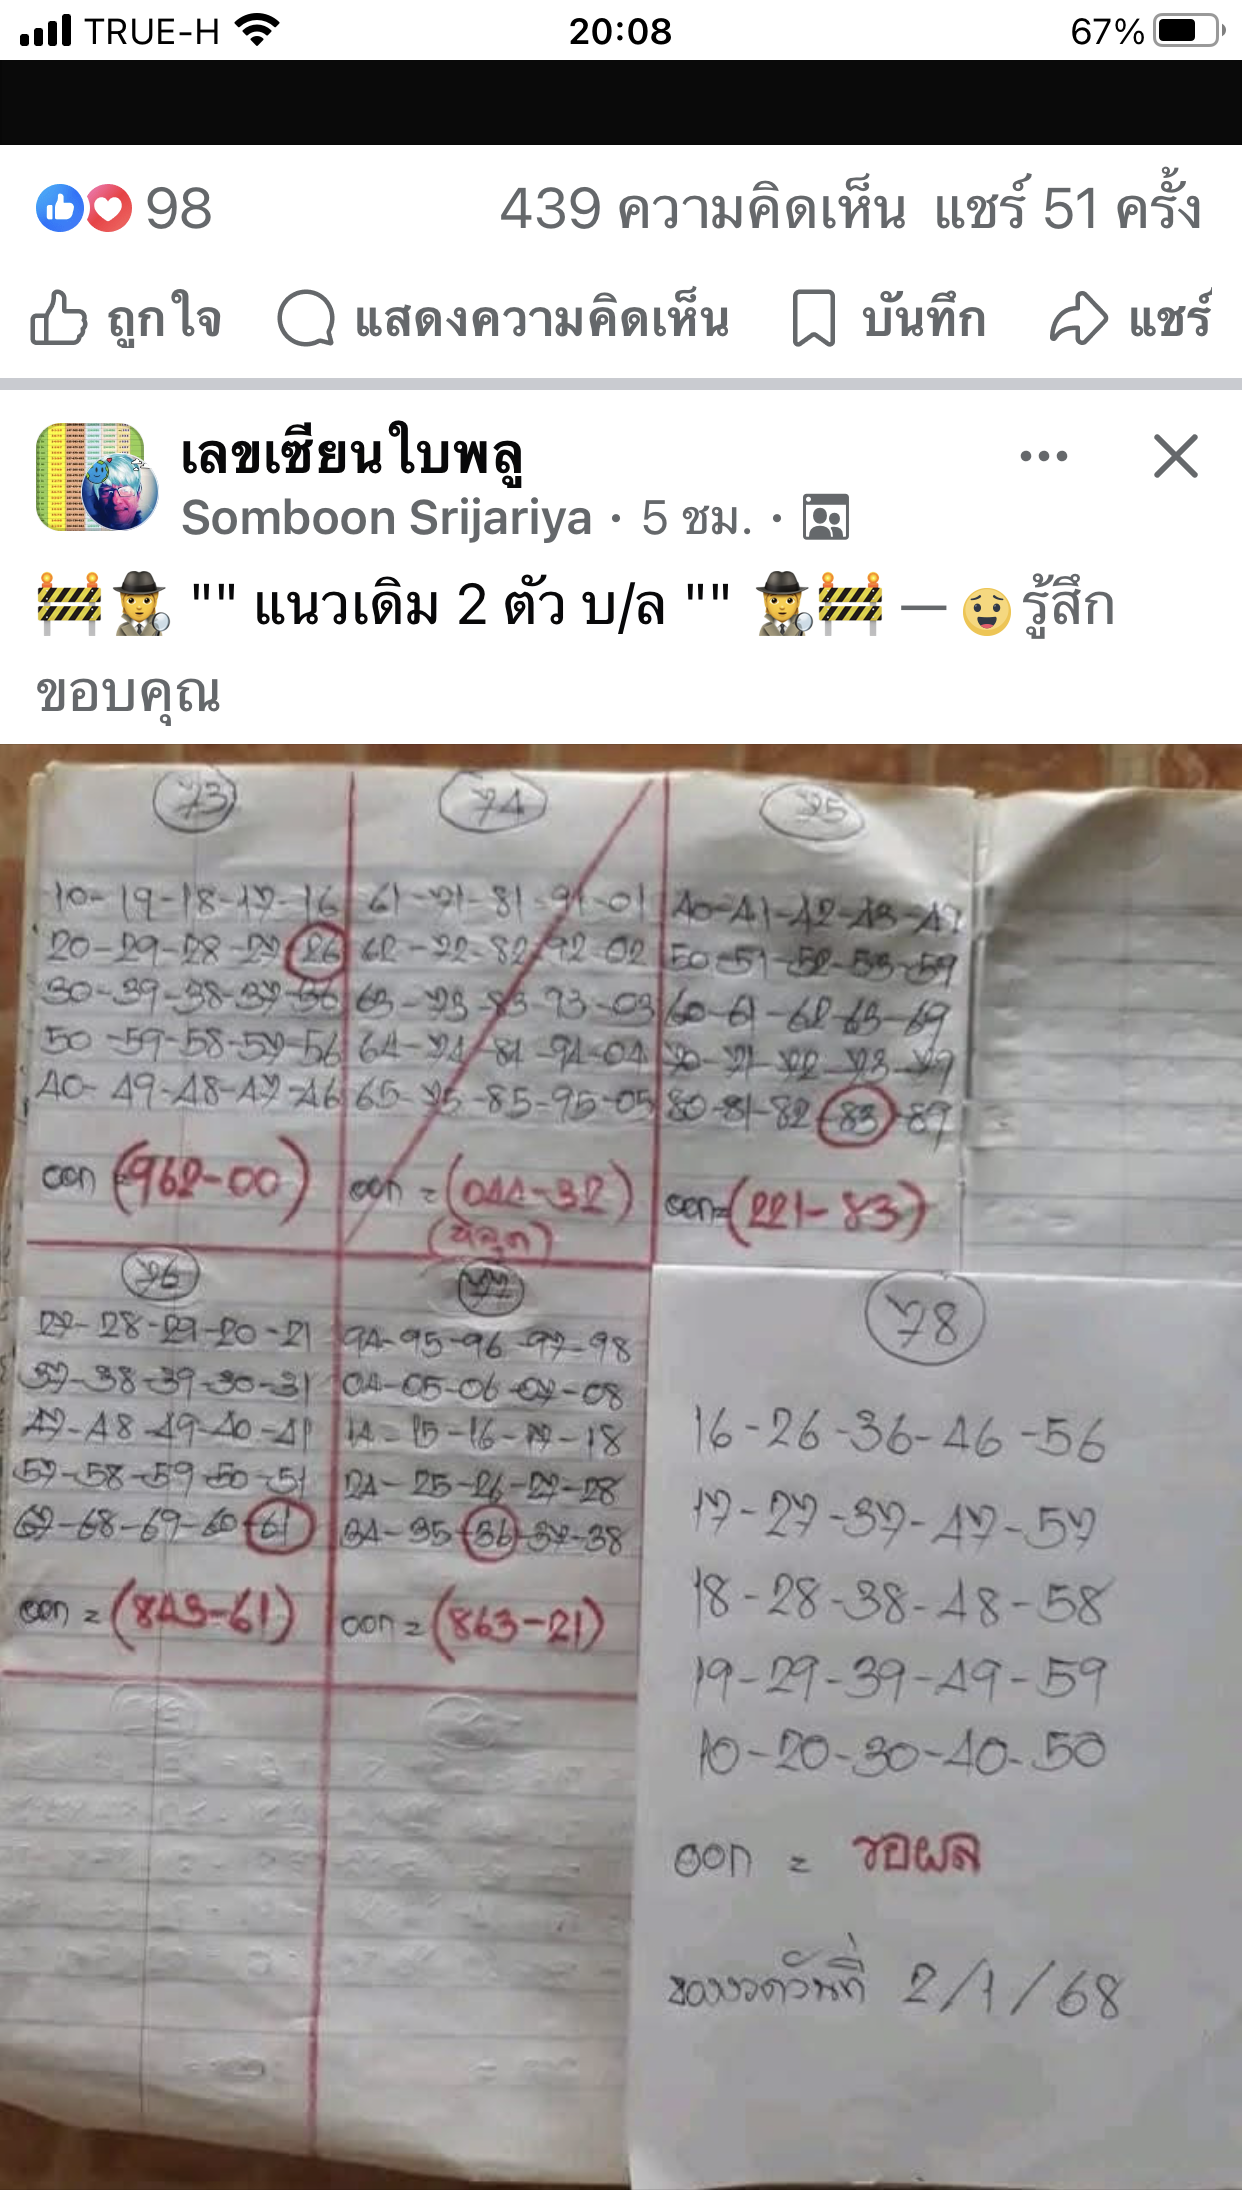 TRUE-H 20:08 67%
98 439 ความคิดเห็น แชร์ 51 ครั้ง
ถูกใจ แสดงความคิดเห็น บันทึก แชร์
เลขเซียนใบพลู
Somboon Srijariya · 5 ชม. ·
"" แนวเดิม 2 ตัว บ/ล "" — รู้สึก
ขอบคุณ
73
10-19-18-17-16
20-29-28-27-26
30-39-38-37-36
50-59-58-57-56
40-49-48-47-46
ออก (962-00)
74
61-71-81-91-01
62-72-82-92-02
63-73-83-93-03
64-74-84-94-04
65-75-85-95-05
ออก = (044-32)
75
40-41-42-43-47
50-51-52-53-59
60-61-62-63-69
70-71-72-73-79
80-81-82-83-89
ออก=(221-83)
76
27-28-29-20-21
37-38-39-30-31
47-48-49-40-41
57-58-59-50-51
67-68-69-60-61
ออก = (843-61)
77
94-95-96-97-98
04-05-06-07-08
14-15-16-17-18
24-25-26-27-28
34-35-36-37-38
ออก = (863-21)
78
16-26-36-46-56
17-27-37-47-57
18-28-38-48-58
19-29-39-49-59
10-20-30-40-50
ออก = รอผล
ของงวดวันที่ 2/1/68